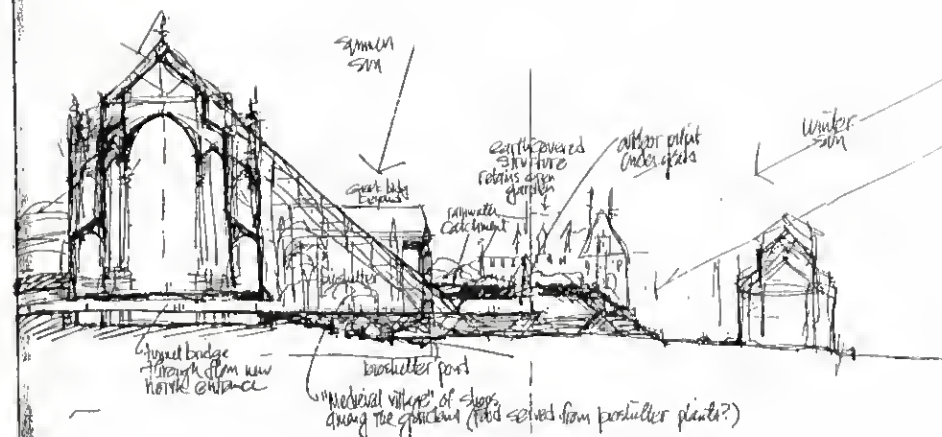 summer
sun
winter
sun
earth covered
structure
retains open
garden
outdoor pulpit
under glass
Great bldg
beyond
rainwater
catchment
bioshelter
tunnel bridge
through from new
north entrance
bioshelter pond
"Medieval village" of shops
among the gardens (food served from bioshelter plants?)